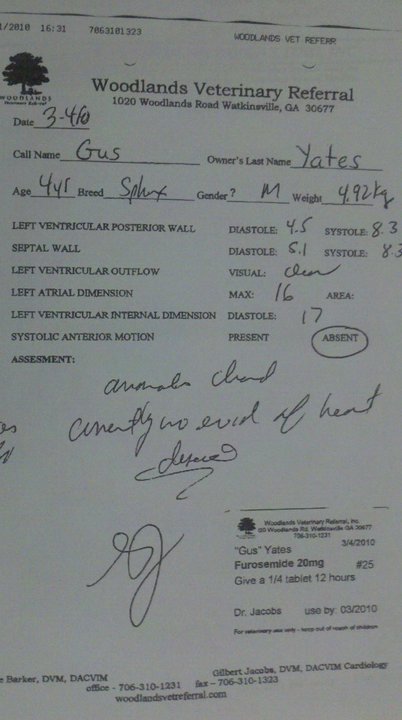 1/2010 16:31 7063101323 WOODLANDS VET REFERR
WOODLANDS
Woodlands Veterinary Referral
1020 Woodlands Road Watkinsville, GA 30677
Date 3-4-10
Call Name Gus Owner's Last Name Yates
Age 4yr Breed Sphinx Gender? M Weight 4.92kg
LEFT VENTRICULAR POSTERIOR WALL DIASTOLE: 4.5 SYSTOLE: 8.3
SEPTAL WALL DIASTOLE: 5.1 SYSTOLE: 8.3
LEFT VENTRICULAR OUTFLOW VISUAL: clear
LEFT ATRIAL DIMENSION MAX: 16 AREA:
LEFT VENTRICULAR INTERNAL DIMENSION DIASTOLE: 17
SYSTOLIC ANTERIOR MOTION PRESENT ABSENT
ASSESMENT:
anomalous chord
currently no evid of heart
disease
Woodlands Veterinary Referral, Inc.
Woodlands Rd. Watkinsville GA 30677
706-310-1231
3/4/2010
"Gus" Yates
Furosemide 20mg #25
Give a 1/4 tablet 12 hours
Dr. Jacobs use by: 03/2010
For veterinary use only - keep out of reach of children
Barker, DVM, DACVIM Gilbert Jacobs, DVM, DACVIM Cardiology
office - 706-310-1231 fax - 706-310-1323
woodlandsvetreferral.com